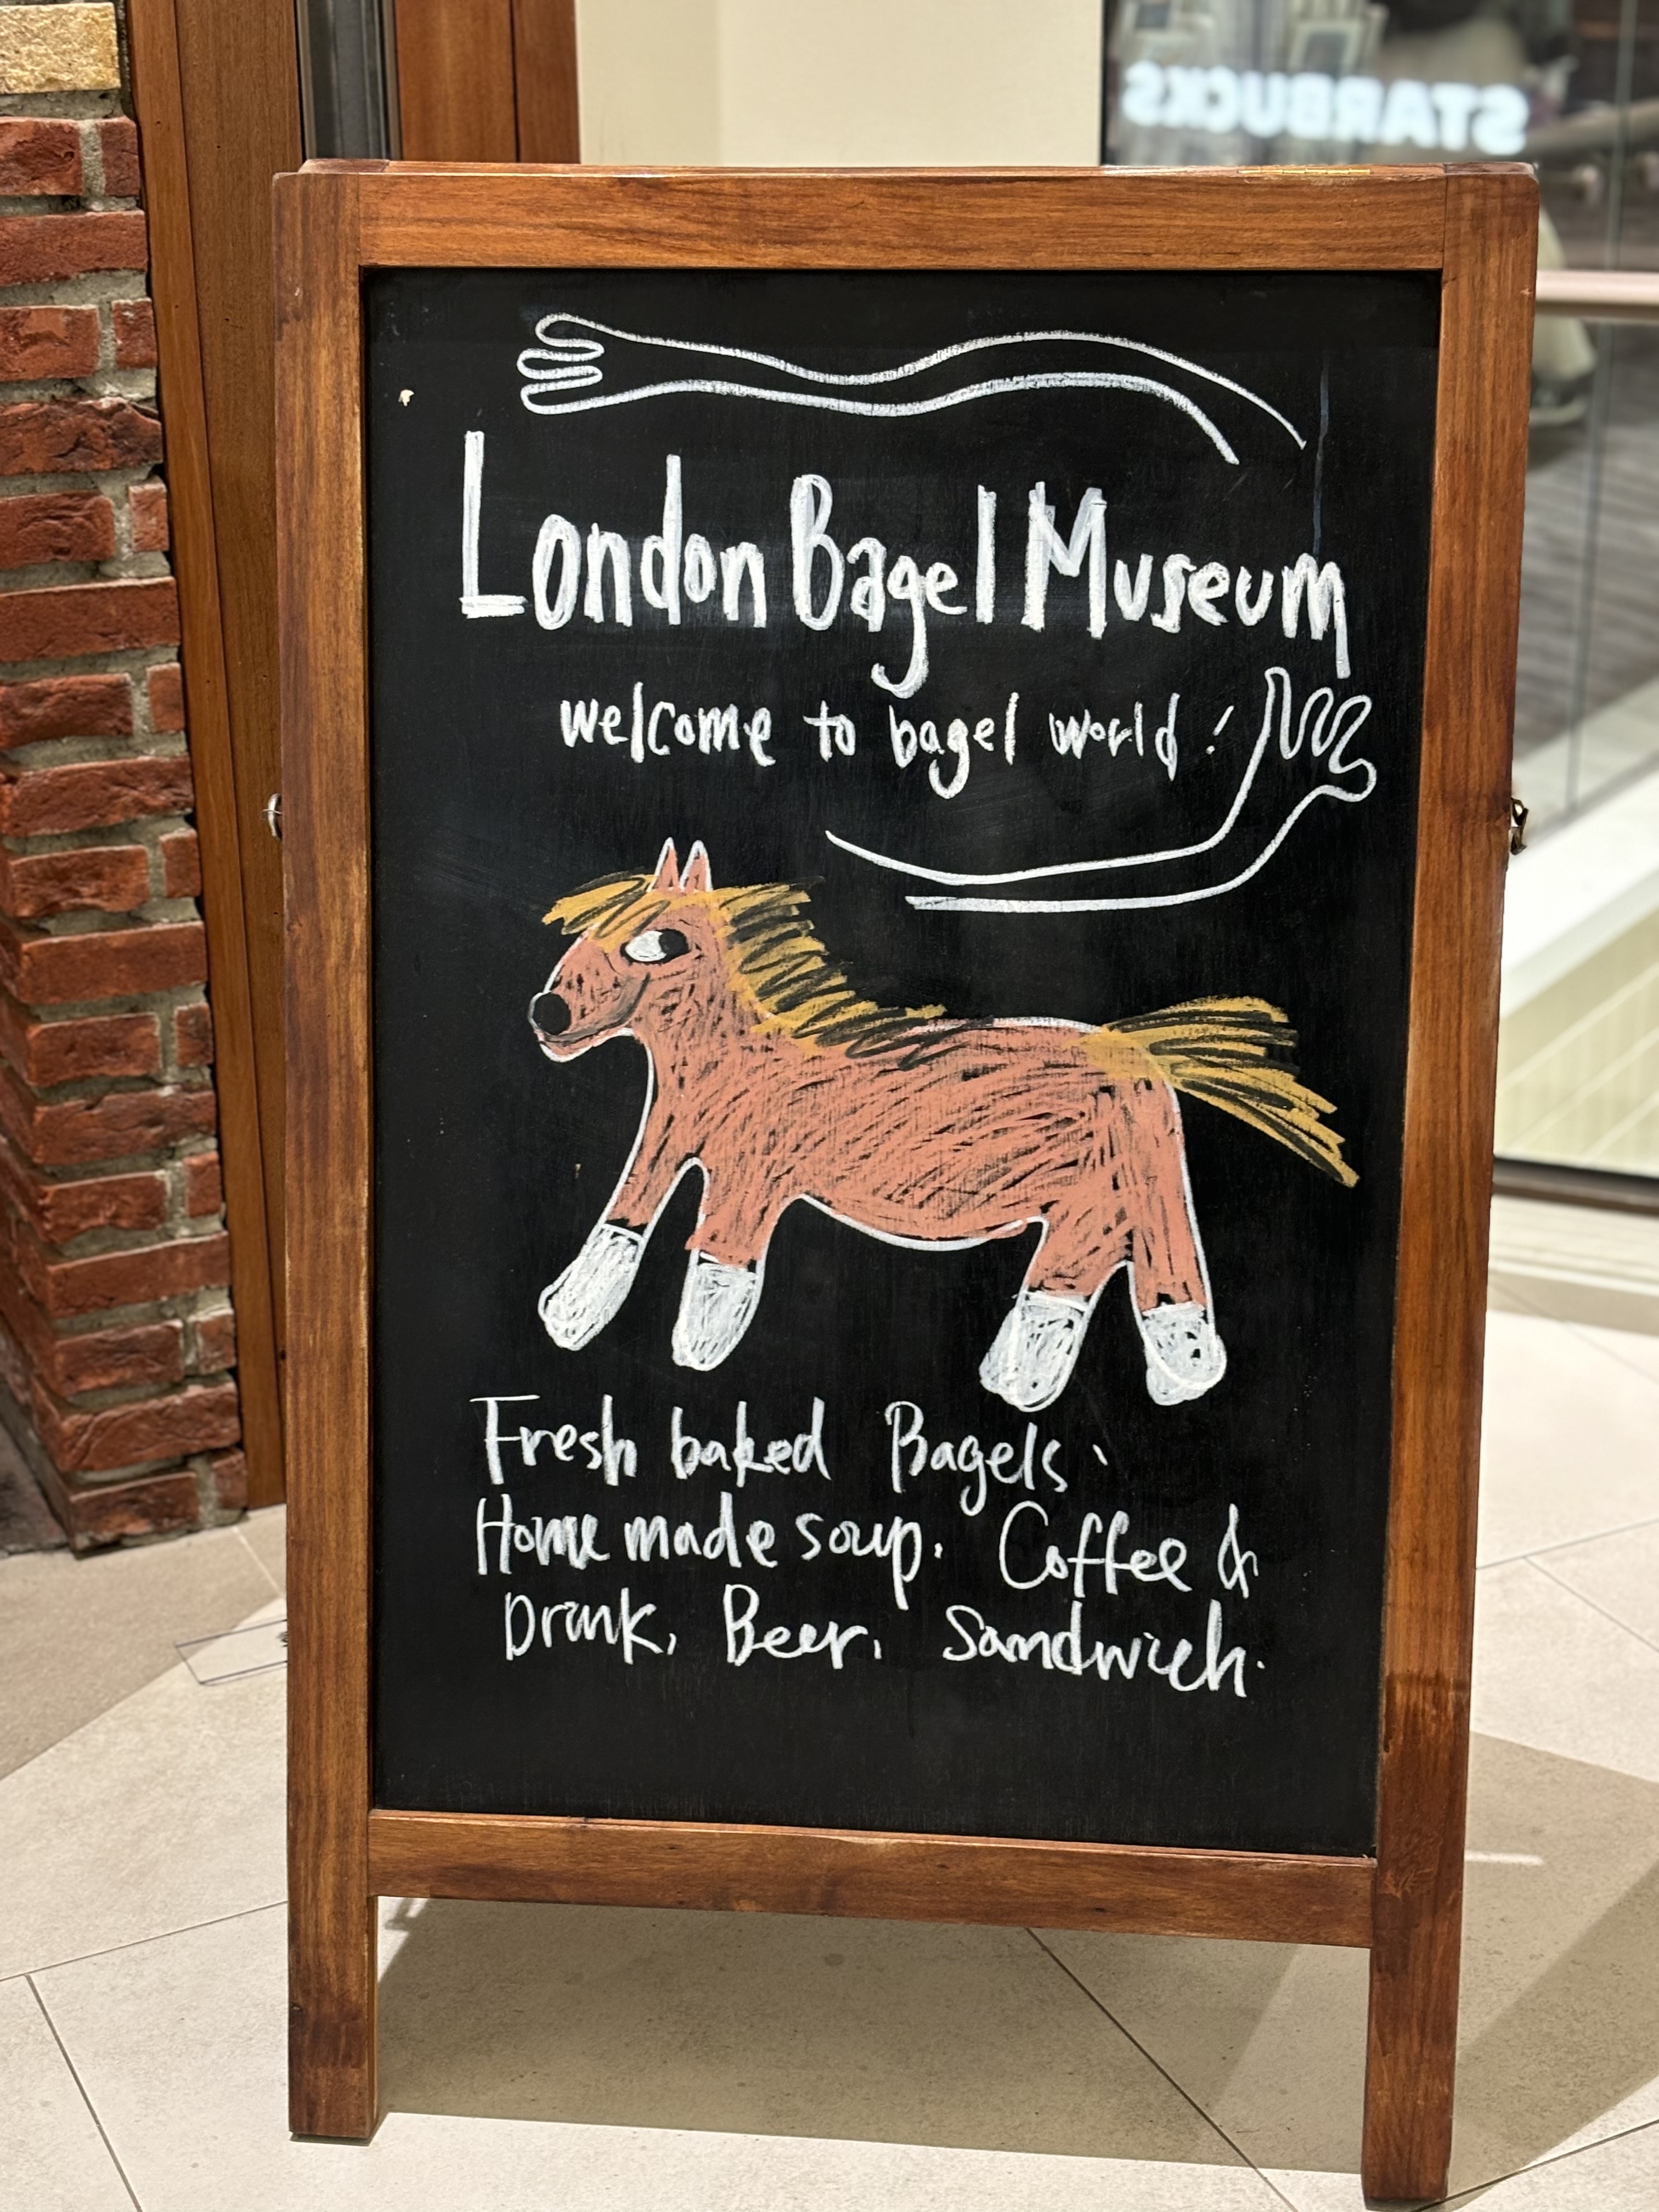 STARBUCKS
London Bagel Museum
welcome to bagel world!
Fresh baked Bagels.
Home made soup. Coffee &
Drink, Beer, Sandwich.